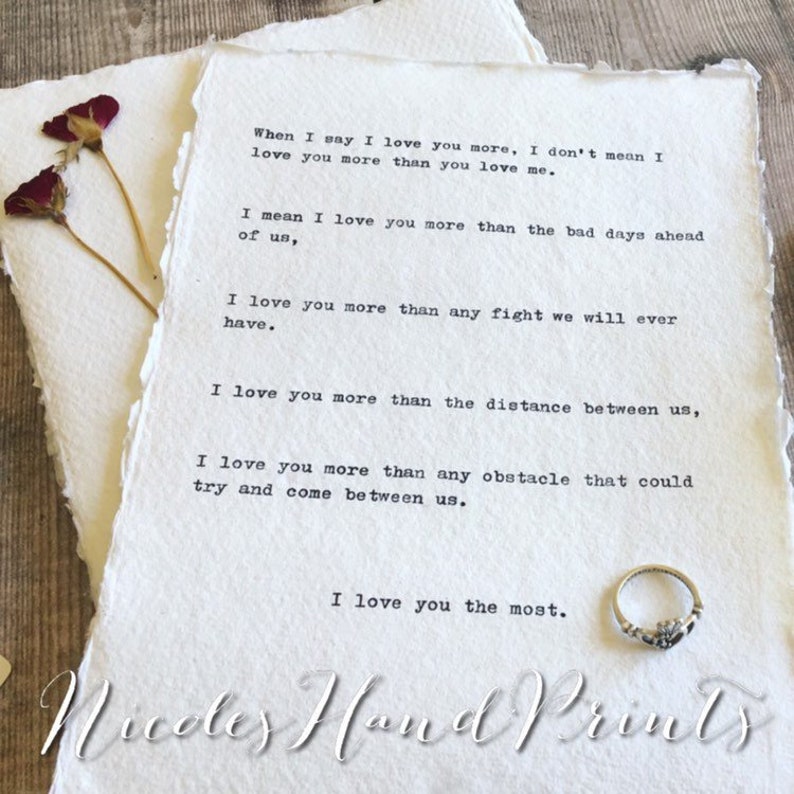 When I say I love you more, I don't mean I
love you more than you love me.
I mean I love you more than the bad days ahead
of us,
I love you more than any fight we will ever
have.
I love you more than the distance between us,
I love you more than any obstacle that could
try and come between us.
I love you the most.
NicolesHandPrints